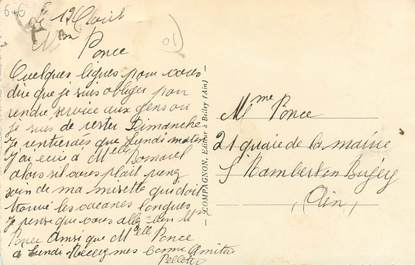 le 12 Avril
Mme Ponce
Quelques lignes pour vous
dire que je suis obliger pour
rendre service aux gens ou
je suis de rester Dimanche
Je rentrerai que Lundi matin
J'ai ecrie à Melle
alors s'il vous plait prenez
soin de ma musette qui doit
trouvé les vacances longues
Je pense que vous allez bien Mr
Ponce Ainsi que Melle Ponce
a Lundi Recevez mes bonne Amitiés
COMPAGNON, Editeur à Belley (Ain)
Mme Ponce
21 quaie de la mairie
St Rambert en Bugey
(Ain)